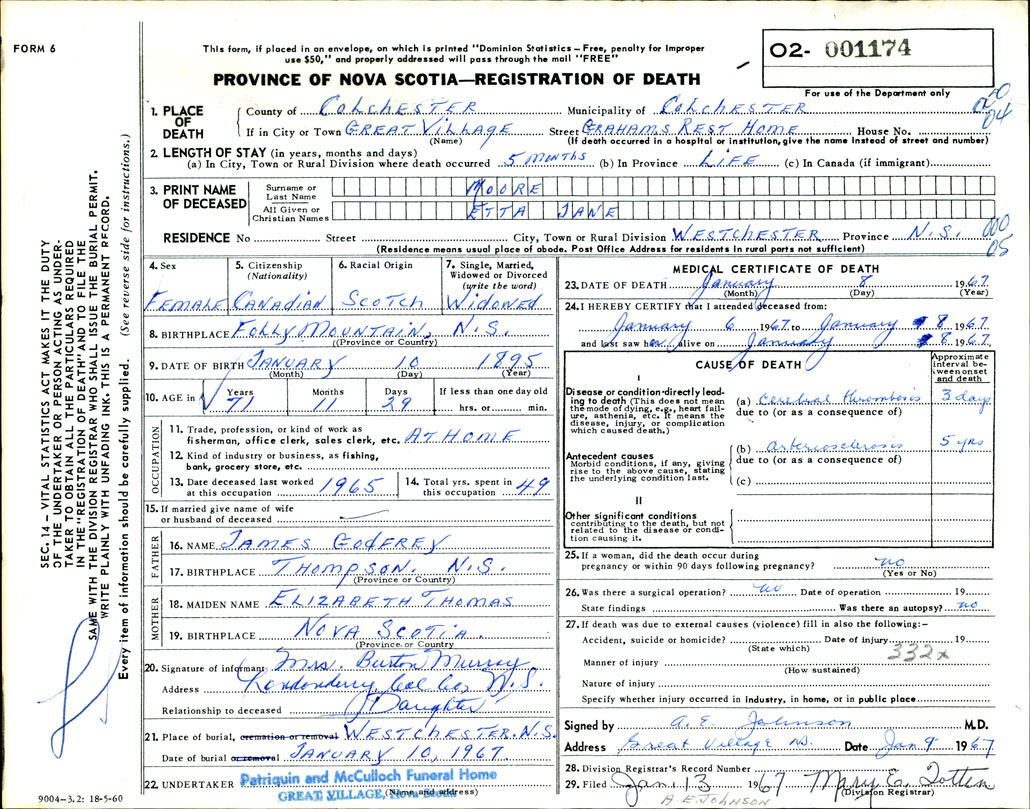 FORM 6
This form, if placed in an envelope, on which is printed "Dominion Statistics – Free, penalty for improper
use $50," and properly addressed will pass through the mail "FREE"
PROVINCE OF NOVA SCOTIA—REGISTRATION OF DEATH
O2- 001174
For use of the Department only
SEC. 14 – VITAL STATISTICS ACT MAKES IT THE DUTY
OF THE UNDERTAKER OR PERSON ACTING AS UNDER-
TAKER TO OBTAIN ALL THE PARTICULARS REQUIRED
IN THE "REGISTRATION OF DEATH" AND TO FILE THE
SAME WITH THE DIVISION REGISTRAR WHO SHALL ISSUE THE BURIAL PERMIT.
WRITE PLAINLY WITH UNFADING INK. THIS IS A PERMANENT RECORD.
Every item of information should be carefully supplied. (See reverse side for instructions.)
1. PLACE OF DEATH
County of COLCHESTER Municipality of COLCHESTER
If in City or Town GREAT VILLAGE Street GRAHAMS REST HOME House No.
(Name) (If death occurred in a hospital or institution, give the name instead of street and number)
04
2. LENGTH OF STAY (in years, months and days)
(a) In City, Town or Rural Division where death occurred 5 MONTHS (b) In Province LIFE (c) In Canada (if immigrant)
3. PRINT NAME OF DECEASED
Surname or Last Name MOORE
All Given or Christian Names ETTA JANE
RESIDENCE No Street City, Town or Rural Division WESTCHESTER Province N.S.
000
05
(Residence means usual place of abode. Post Office Address for residents in rural parts not sufficient)
4. Sex FEMALE
5. Citizenship (Nationality) CANADIAN
6. Racial Origin SCOTCH
7. Single, Married, Widowed or Divorced (write the word) WIDOWED
8. BIRTHPLACE FOLLY MOUNTAIN, N.S.
(Province or Country)
9. DATE OF BIRTH JANUARY 10 1895
(Month) (Day) (Year)
10. AGE in Years 71 Months 11 Days 29 If less than one day old hrs. or min.
OCCUPATION
11. Trade, profession, or kind of work as
fisherman, office clerk, sales clerk, etc. AT HOME
12. Kind of industry or business, as fishing,
bank, grocery store, etc.
13. Date deceased last worked at this occupation 1965
14. Total yrs. spent in this occupation 49
15. If married give name of wife
or husband of deceased
FATHER
16. NAME JAMES GODFREY
17. BIRTHPLACE THOMPSON. N.S.
(Province or Country)
MOTHER
18. MAIDEN NAME ELIZABETH THOMAS
19. BIRTHPLACE NOVA SCOTIA.
(Province or Country)
20. Signature of informant Mrs. Burton Murray
Address Londonderry Col Co, N.S.
Relationship to deceased Daughter
21. Place of burial, cremation or removal WESTCHESTER. N.S.
Date of burial or removal JANUARY 10, 1967.
22. UNDERTAKER Patriquin and McCulloch Funeral Home
(Name and address)
GREAT VILLAGE, Nova Scotia
9004–3.2: 18-5-60
MEDICAL CERTIFICATE OF DEATH
23. DATE OF DEATH January 8 1967.
(Month) (Day) (Year)
24. I HEREBY CERTIFY that I attended deceased from:
January 6 1967 to January 8 1967
and last saw her alive on January 8 1967.
CAUSE OF DEATH
Approximate interval between onset and death
I
Disease or condition directly lead-
ing to death (This does not mean
the mode of dying, e.g., heart fail-
ure, asthenia, etc. It means the
disease, injury, or complication
which caused death.)
(a) Cerebral thrombosis 3 days
due to (or as a consequence of)
Antecedent causes
Morbid conditions, if any, giving
rise to the above cause, stating
the underlying condition last.
(b) arteriosclerosis 5 yrs
due to (or as a consequence of)
(c)
II
Other significant conditions
contributing to the death, but not
related to the disease or condi-
tion causing it.
25. If a woman, did the death occur during
pregnancy or within 90 days following pregnancy? no
(Yes or No)
26. Was there a surgical operation? no Date of operation 19
State findings Was there an autopsy? no
27. If death was due to external causes (violence) fill in also the following:–
Accident, suicide or homicide? Date of injury 19
(State which)
332x
Manner of injury
(How sustained)
Nature of injury
Specify whether injury occurred in industry, in home, or in public place
Signed by A. E. Johnson M.D.
Address Great Village NS. Date Jan 9 1967
28. Division Registrar's Record Number
29. Filed Jan 13 1967 Mary E. Totten
(Division Registrar)
A E JOHNSON